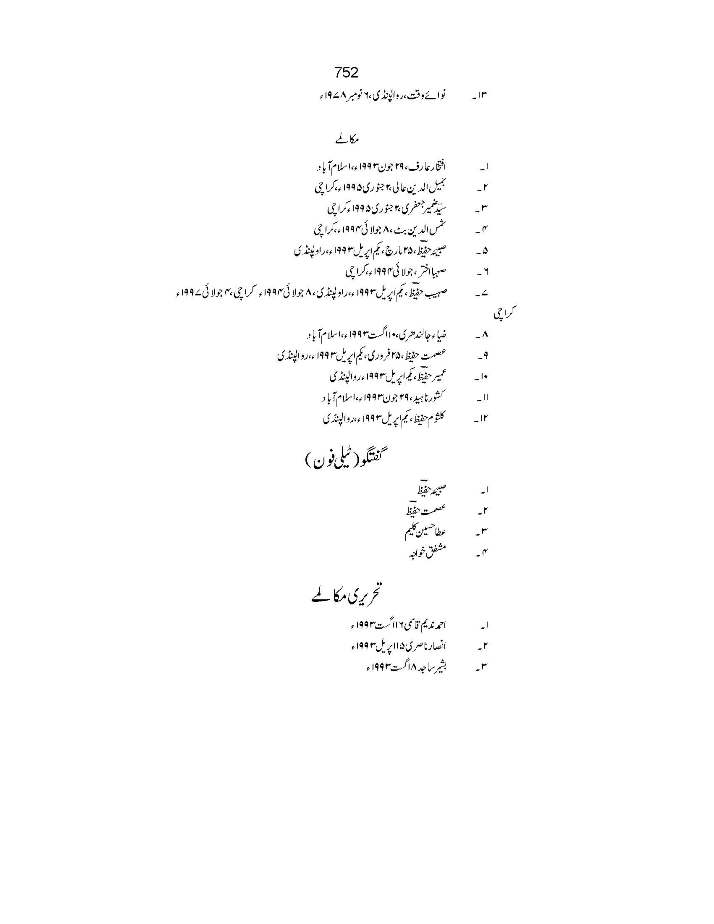 752
۱۳۔ نوائے وقت، راولپنڈی، ۶ نومبر ۱۹۷۸ء
مکالمے
۱۔ افتخار عارف، ۲۹ جون ۱۹۹۳ء، اسلام آباد
۲۔ جمیل الدین عالی، ۲ جنوری ۱۹۹۵ء، کراچی
۳۔ سیّد ضمیر جعفری، ۲ جنوری ۱۹۹۵ء کراچی
۴۔ شمس الدین بٹ، ۸ جولائی ۱۹۹۴ء، کراچی
۵۔ صبیحہ حفیظؔ، ۲۵ مارچ، یکم اپریل ۱۹۹۳ء، راولپنڈی
۶۔ صہبا اختر، جولائی ۱۹۹۴ء، کراچی
۷۔ صہیب حفیظؔ، یکم اپریل ۱۹۹۳ء، راولپنڈی، ۸ جولائی ۱۹۹۴ء کراچی، ۴ جولائی ۱۹۹۷ء
کراچی
۸۔ ضیاء جالندھری، ۱۰ اگست ۱۹۹۳ء، اسلام آباد
۹۔ عصمت حفیظ، ۲۵ فروری، یکم اپریل ۱۹۹۳ء، راولپنڈی
۱۰۔ عمیر حفیظؔ، یکم اپریل ۱۹۹۳ء راولپنڈی
۱۱۔ کشور ناہید، ۲۹ جون ۱۹۹۳ء، اسلام آباد
۱۲۔ کلثوم حفیظ، یکم اپریل ۱۹۹۳ء، راولپنڈی
گفتگو (ٹیلی فون)
۱۔ صبیحہ حفیظؔ
۲۔ عصمت حفیظؔ
۳۔ عطا حسین کلیم
۴۔ مشفق خواجہ
تحریری مکالمے
۱۔ احمد ندیم قاسمی ۱۶ اگست ۱۹۹۳ء
۲۔ انصار ناصری ۱۵ اپریل ۱۹۹۳ء
۳۔ بشیر ساجد ۱۸ اگست ۱۹۹۳ء